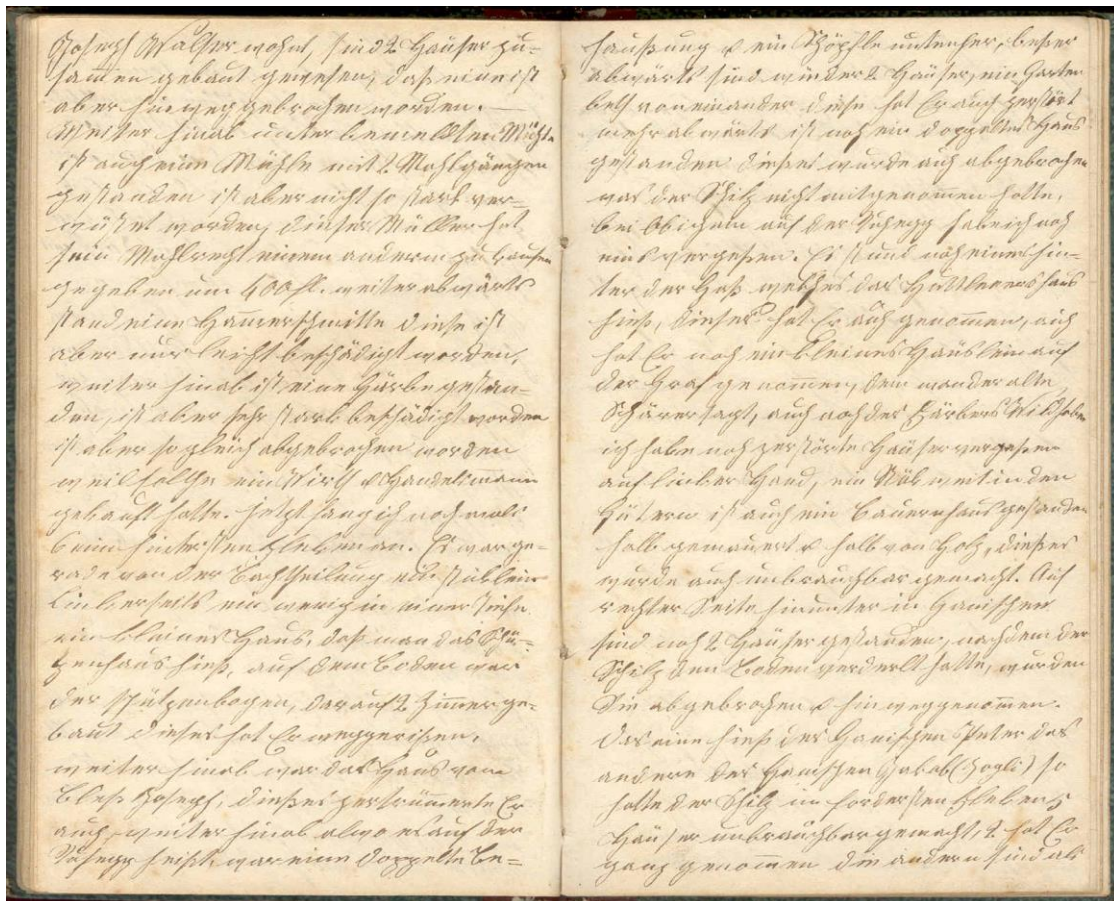 Joseph Walser wohnt, sind 2 Häuser zu-
samen gebaut gewesen, daß eine ist
aber hinweg gebrochen worden. —
Weiter hinab unter bemeldten Mühle
ist auch eine Mühle mit 2 Mahlgängen
gestanden ist aber nicht so stark ver-
wüstet worden, dieser Müller hat
sein Mahlrecht einem andern zu kaufen
gegeben um 400 fl. weiter abwärts
stand eine Hamerschmitte diese ist
aber nur leicht beschädigt worden,
weiter hinab ist eine Färbe gestan-
den, ist aber sehr stark beschädigt worden
ist aber so gleich abgebrochen worden
weil solche ein Wirth & Handelsmann
gekauft hatte. Jetzt fang ich noch mals
beim hintersten an. Es war ge-
rade von der Bachtheilung ein stüklein
linkerseits ein wenig in einer Tiefe
ein kleines Haus, daß man das Schü-
tzenhaus hieß, auf dem Boden war
der Schützenbogen, darauf 2 Zimer ge-
baut dieses hat Er weggerissen,
weiter hinab war das Haus vom
Bleß Joseph, dießes zertrümerte Er
auch, weiter hinab alwo es auf der
heißt, war eine doppelte Be-
haußung & ein Schöpfle untenher, beßer
abwärts sind wieder 2 Häuser, ein Garten
beth voneinander diese hat Er auch zerstört
mehr abwärts ist noch ein doppeltes Haus
gestanden dieses wurde auch abgebrochen
was der Schilz nicht mitgenomen hatte,
bei auf der habe ich noch
eins vergeßen. Es stund noch eines hin-
ter der Gaß welches das haus
hieß, dieses hat Er auch genomen, auch
hat Er noch ein kleines Häuslein auf
der genomen, dem man der alte
Schärer sagt, auch noch des Färbers Wildhaber
ich habe noch zerstörte Häuser vergeßen
auf linker Hand, ein Stük weit in den
Gütern ist auch ein Bauernhaus gestanden
halb gemauert & halb von Holz, dießes
wurde auch unbrauchbar gemacht. Auf
rechter Seite hinunter in Hanischen
sind noch 2 Häuser gestanden, nachdem der
Schilz den Boden verderbt hatte, wurden
Sie abgebrochen & hinweggenomen.
Das eine hieß des Hanischen Peter das
andere des Hanischen Jakob (Jogli) so
hatte der Schilz im fordersten 5
Häuser unbrauchbar gemacht, 2 hat Er
ganz genomen die andern sind als